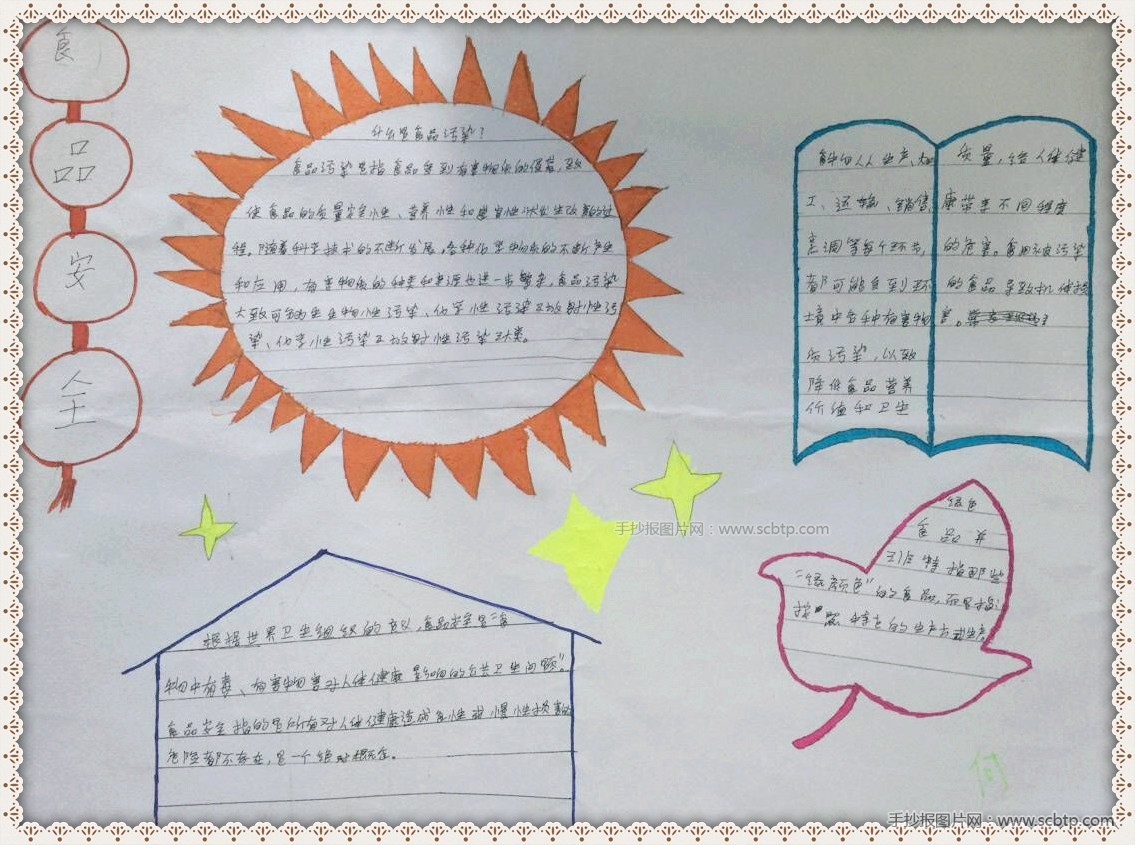 食
品
安
全
什么是食品污染?
食品污染是指食品受到有害物质的侵袭,致
使食品的质量安全性、营养性和感官性状发生改变的过
程。随着科学技术的不断发展,各种化学物质的不断产生
和应用,有害物质的种类和来源也进一步繁杂,食品污染
大致可分为生物性污染、化学性污染及放射性污
染、化学性污染及放射性污染三类。
食物从生产、加
工、运输、销售、
烹调等每个环节,
都可能受到环
境中各种有害物
质污染,以致
降低食品营养
价值和卫生
质量,给人体健
康带来不同程度
的危害。食用被污染
的食品导致机体损
害。
手抄报图片网:www.scbtp.com
绿色
食品并
非特指那些
"绿颜色"的食品,而是指
按照特定的生产方式生产
根据世界卫生组织的定义,食品安全是"食
物中有毒、有害物害对人体健康影响的公共卫生问题"。
食品安全指的是所有对人体健康造成急性或慢性损害的
危险都不存在,是一个绝对概念。
何
手抄报图片网:www.scbtp.com